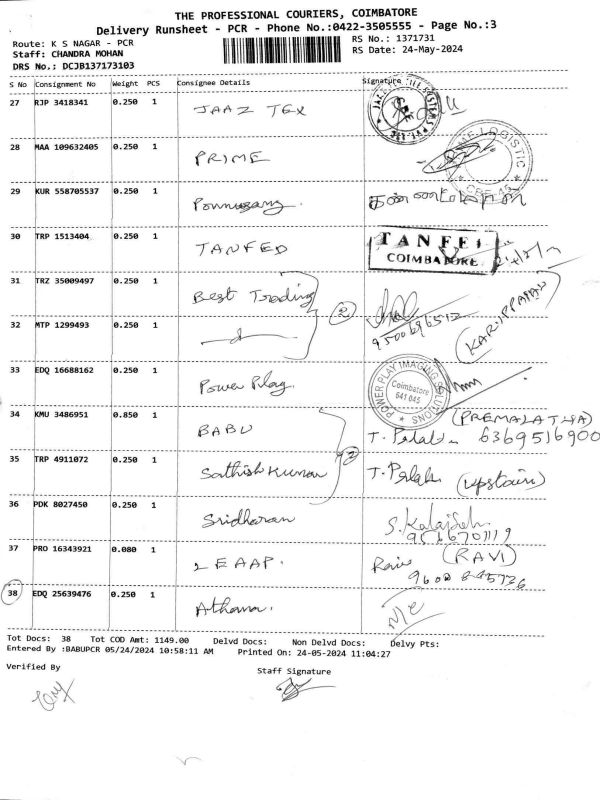 THE PROFESSIONAL COURIERS, COIMBATORE
Delivery Runsheet - PCR - Phone No.:0422-3505555 - Page No.:3
Route: K S NAGAR - PCR
RS No.: 1371731
Staff: CHANDRA MOHAN
RS Date: 24-May-2024
DRS No.; DCJB137173103
S No Consignment No Weight PCS Consignee Details Signature
27 RJP 3418341 0.250 1 JAAZ TEX
28 MAA 109632405 0.250 1 PRIME
29 KUR 558705537 0.250 1
30 TRP 1513404 0.250 1 TANFED TANFED COIMBATORE
31 TRZ 35009497 0.250 1 Best Trading 2 9500696512 (KARUPPAIAH)
32 MTP 1299493 0.250 1
33 EDQ 16688162 0.250 1 Power Play POWER PLAY IMAGING SOLUTIONS Coimbatore 641 045
34 KMU 3486951 0.850 1 BABU (PREMALATHA)
6369516900
35 TRP 4911072 0.250 1 Sathish Kumar 2 (upstair)
36 PDK 8027450 0.250 1 Sridharan
9566701119
37 PRO 16343921 0.080 1 LEAAP. Ravi (RAVI)
38 EDQ 25639476 0.250 1 N/C
Tot Docs: 38 Tot COD Amt: 1149.00 Delvd Docs: Non Delvd Docs: Delvy Pts:
Entered By :BABUPCR 05/24/2024 10:58:11 AM Printed On: 24-05-2024 11:04:27
Verified By
Staff Signature